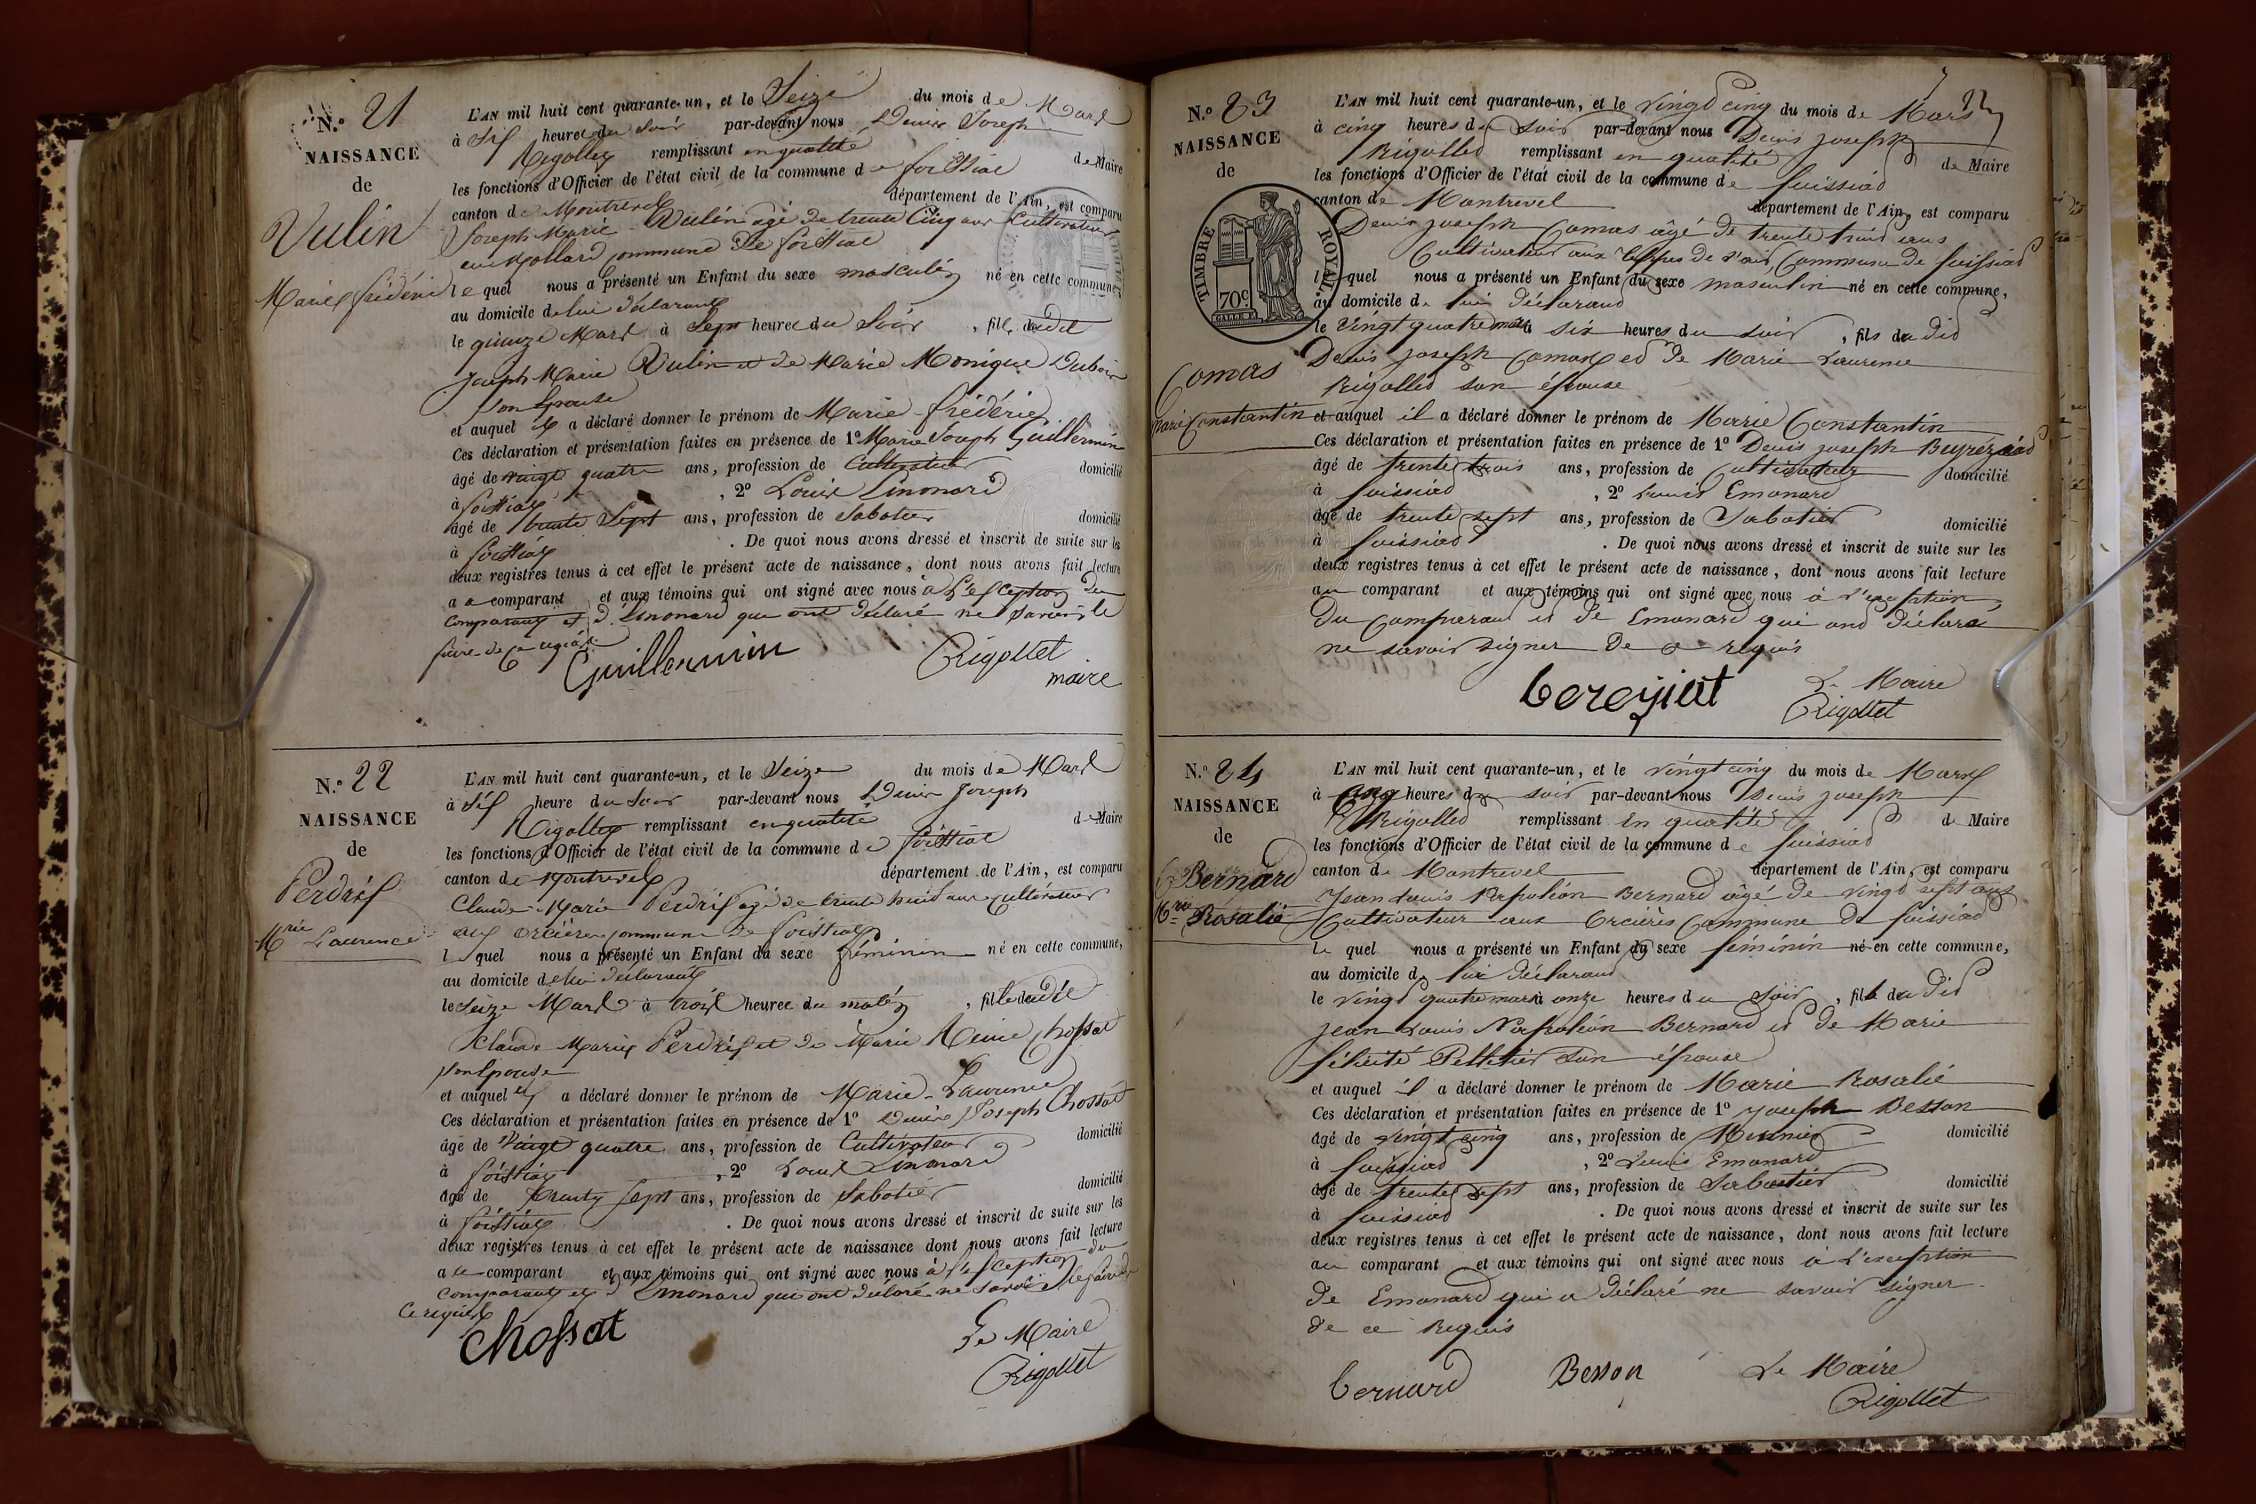 N.º 21
NAISSANCE
de
Vulin
Marie frédéric
L'AN mil huit cent quarante-un, et le Seize du mois de Mars
à six heures du soir par-devant nous Denis Joseph
Rigollet remplissant en qualité de Maire
les fonctions d'Officier de l'état civil de la commune de foissiat
canton de Montrevel département de l'Ain, est comparu
Joseph Marie Vulin agé de trente Cinq ans Cultivateur
au Mollard commune de foissiat
le quel nous a présenté un Enfant du sexe masculin né en cette commune,
au domicile de lui déclarant
le quinze Mars à sept heures du soir, fils dudit
Joseph Marie Vulin et de Marie Monique Dubois
son Epouse
et auquel il a déclaré donner le prénom de Marie frédéric
Ces déclaration et présentation faites en présence de 1º Marie Joseph Guillermin
âgé de vingt quatre ans, profession de Cultivateur domicilié
à foissiat, 2º Louis Emonard
âgé de trente sept ans, profession de Sabotier domicilié
à foissiat. De quoi nous avons dressé et inscrit de suite sur les
deux registres tenus à cet effet le présent acte de naissance, dont nous avons fait lecture
au comparant et aux témoins qui ont signé avec nous à l'exception du
comparant et d'Emonard que ont déclaré ne savoir le
faire de ce requis
Guillermin Rigollet
maire
N.º 22
NAISSANCE
de
Perdrix
Mrie Laurence
L'AN mil huit cent quarante-un, et le Seize du mois de Mars
à six heure du soir par-devant nous Denis Joseph
Rigollet remplissant en qualité de Maire
les fonctions d'Officier de l'état civil de la commune de foissiat
canton de Montrevel département de l'Ain, est comparu
Claude Marie Perdrix agé de trente huit ans Cultivateur
aux Orcières commune de foissiat
le quel nous a présenté un Enfant du sexe féminin né en cette commune,
au domicile de lui déclarant
le Seize Mars à trois heures du matin, fille dudit
Claude Marie Perdrix et de Marie Reine Chossat
son Epouse
et auquel il a déclaré donner le prénom de Marie-Laurence
Ces déclaration et présentation faites en présence de 1º Denis Joseph Chossat
âgé de vingt quatre ans, profession de Cultivateur domicilié
à foissiat, 2º Louis Emonard
âgé de trente sept ans, profession de Sabotier domicilié
à foissiat. De quoi nous avons dressé et inscrit de suite sur les
deux registres tenus à cet effet le présent acte de naissance dont nous avons fait lecture
au comparant et aux témoins qui ont signé avec nous à l'exception du
comparant et d'Emonard qui ont déclaré ne savoir le faire de
ce requis
Chossat Le Maire
Rigollet
22
N.º 23
NAISSANCE
de
TIMBRE ROYAL
70c
Comas
Marie Constantin
L'AN mil huit cent quarante-un, et le vingt cinq du mois de Mars
à cinq heures du soir par-devant nous Denis joseph
Rigolled remplissant en qualité de Maire
les fonctions d'Officier de l'état civil de la commune de foissiad
canton de Montrevel département de l'Ain, est comparu
Denis joseph Comas âgé de trente trois ans
Cultivateur aux Commune de foissiad
le quel nous a présenté un Enfant du sexe masculin né en cette commune,
au domicile de lui déclarand
le vingt quatre mars à six heures du soir, fils du did
Denis joseph Comas ed de Marie Laurence
Rigolled son épouse
et auquel il a déclaré donner le prénom de Marie Constantin
Ces déclaration et présentation faites en présence de 1º Denis joseph Beyréziad
âgé de trente trois ans, profession de Cultivateur domicilié
à foissiad, 2º Louis Emonard
âgé de trente sept ans, profession de Sabotier domicilié
à foissiad. De quoi nous avons dressé et inscrit de suite sur les
deux registres tenus à cet effet le présent acte de naissance, dont nous avons fait lecture
au comparant et aux témoins qui ont signé avec nous à l'exception
du Comparand et de Emonard qui ond déclaré
ne savoir signer de ce requis
bereyiat Le Maire
Rigollet
N.º 24
NAISSANCE
de
Bernard
Mrie Rosalie
L'AN mil huit cent quarante-un, et le vingt cinq du mois de Mars
à cinq heures du soir par-devant nous Denis joseph
Rigolled remplissant en qualité de Maire
les fonctions d'Officier de l'état civil de la commune de foissiad
canton de Montrevel département de l'Ain, est comparu
Jean Louis Napoléon Bernard âgé de vingt sept ans
Cultivateur aux Orcières Commune de foissiad
le quel nous a présenté un Enfant du sexe féminin né en cette commune,
au domicile de lui déclarand
le vingt quatre mars à onze heures du soir, fille du did
jean Louis Napoléon Bernard et de Marie
félicité Pelletier son épouse
et auquel il a déclaré donner le prénom de Marie Rosalie
Ces déclaration et présentation faites en présence de 1º joseph Besson
âgé de vingt cinq ans, profession de Meunier domicilié
à foissiad, 2º Louis Emonard
âgé de trente sept ans, profession de Sabotier domicilié
à foissiad. De quoi nous avons dressé et inscrit de suite sur les
deux registres tenus à cet effet le présent acte de naissance, dont nous avons fait lecture
au comparant et aux témoins qui ont signé avec nous à l'exception
de Emonard qui a déclaré ne savoir signer
de ce Requis
bernard Besson Le Maire
Rigollet